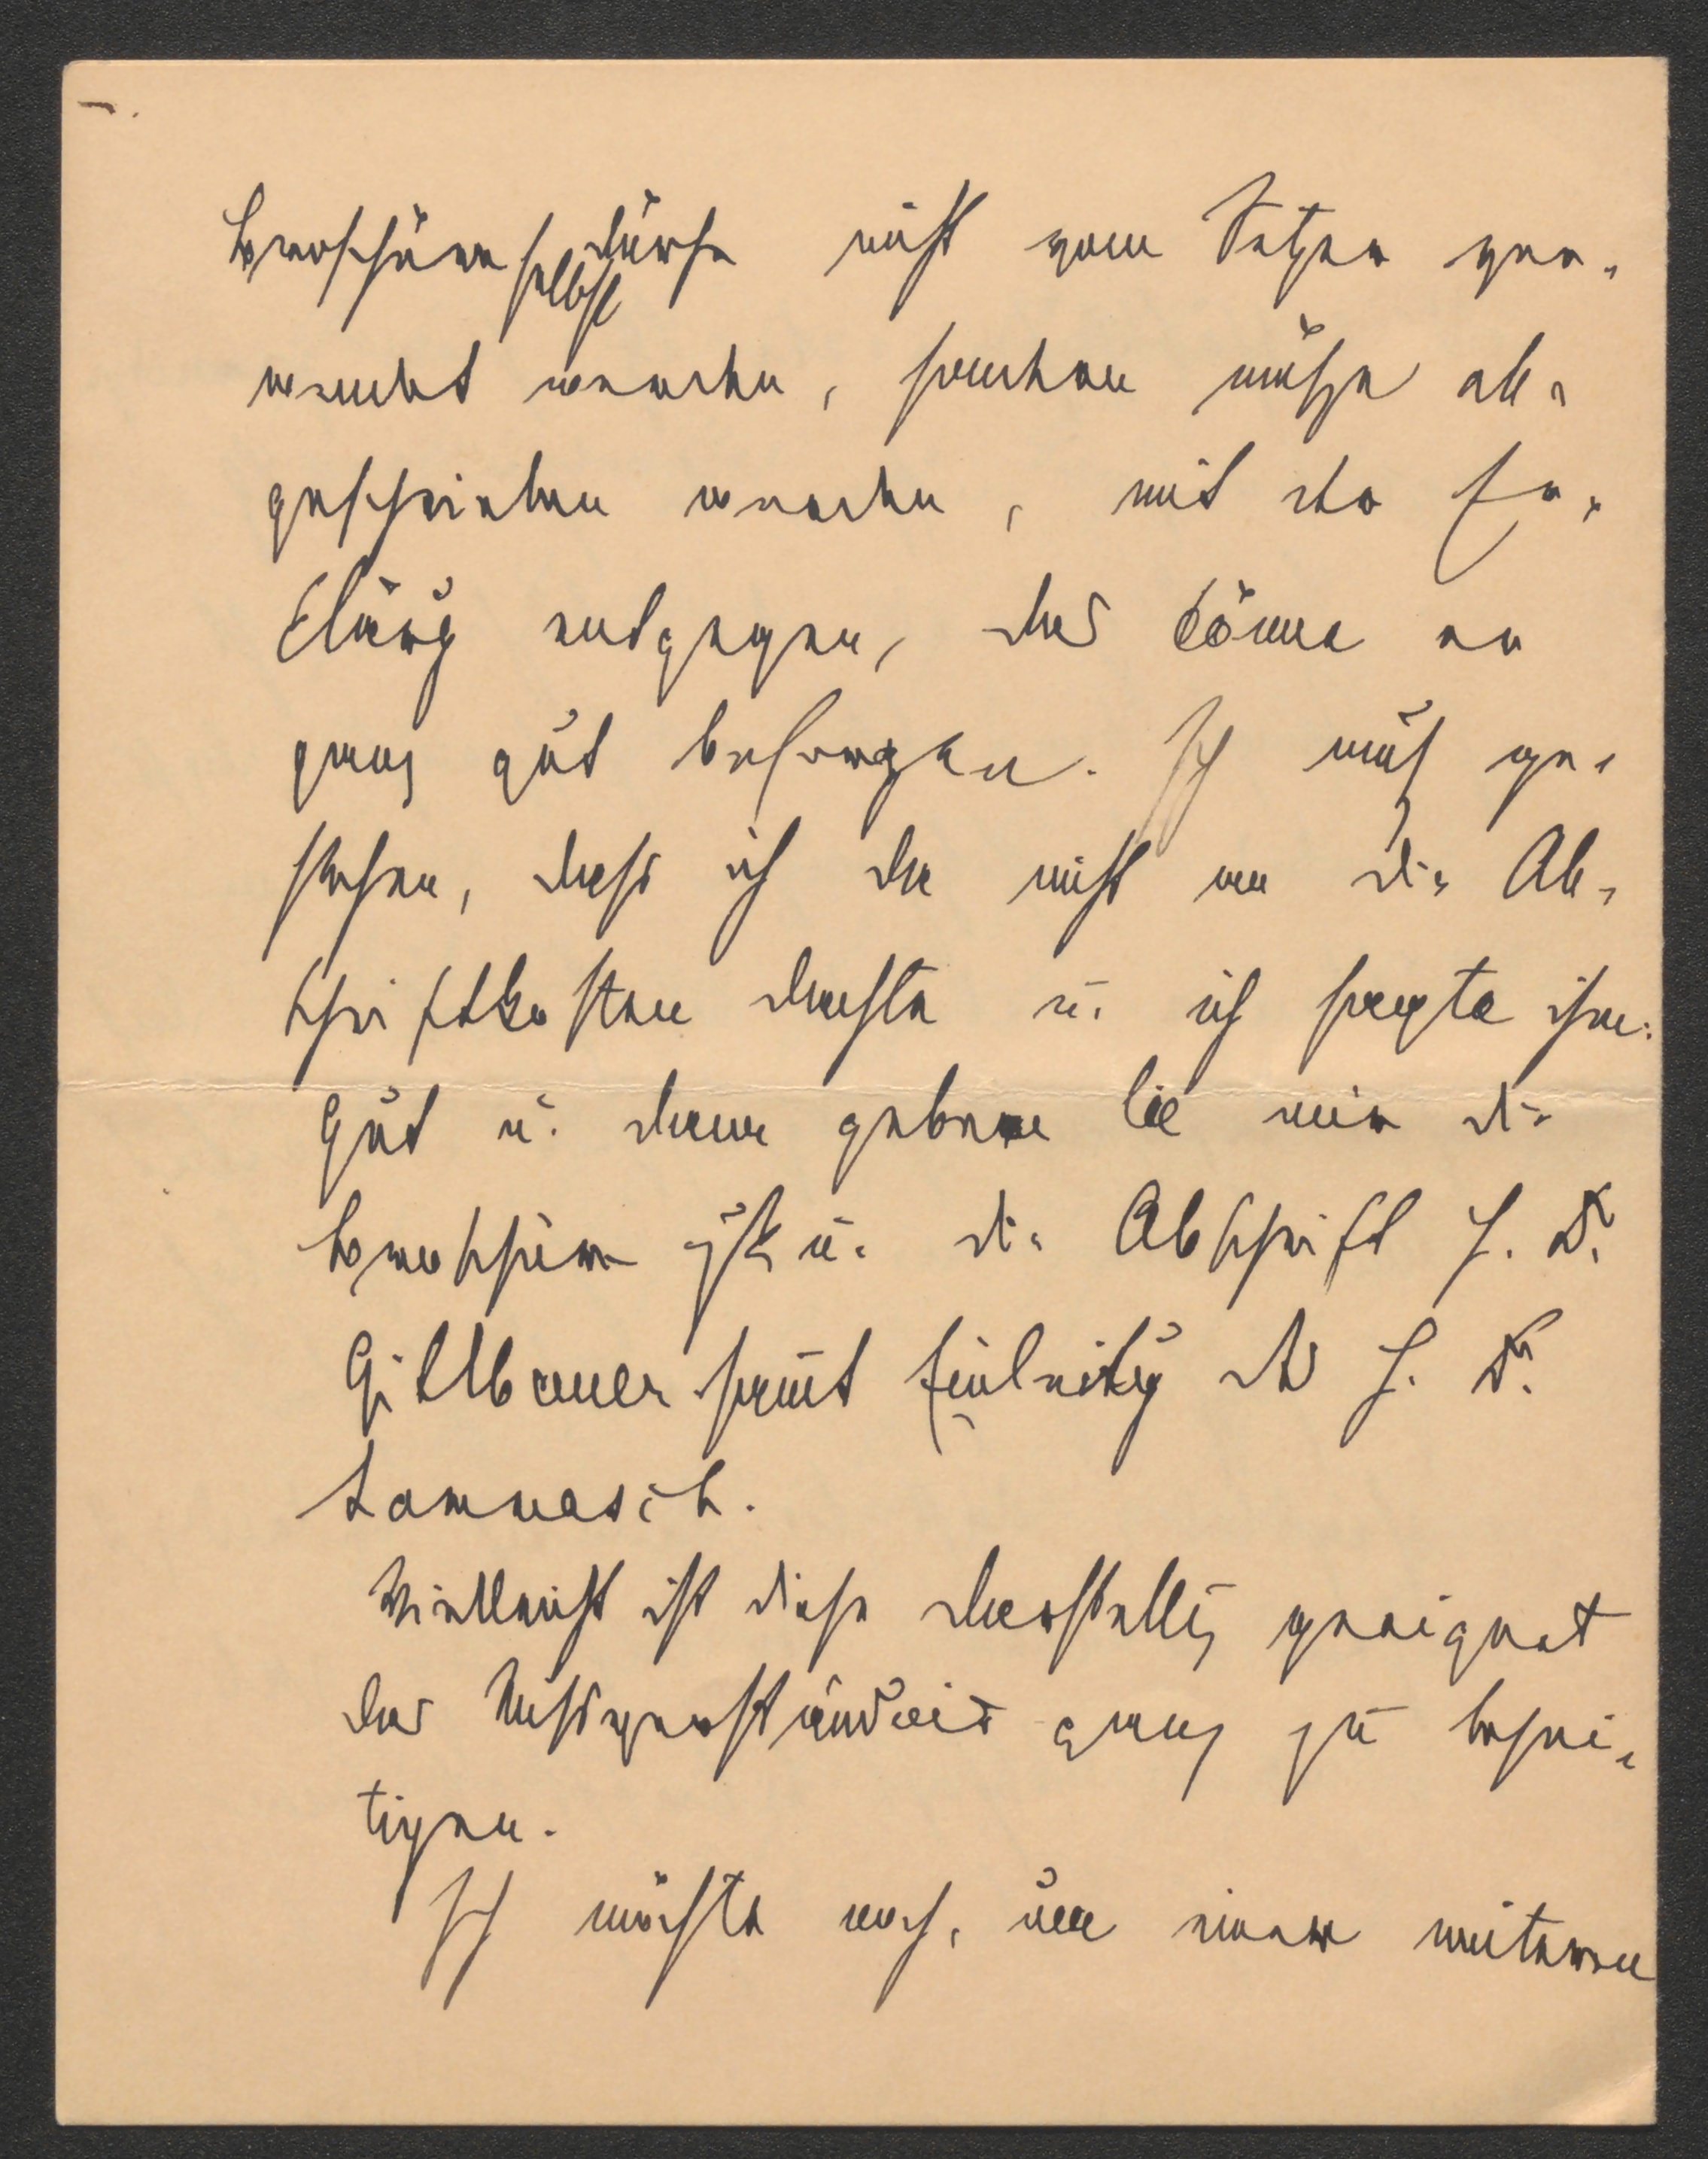 Broschüre selbst dürfe nicht vom Setzer ver-
wendet werden, sondern müsse ab-
geschrieben werden, mit der Er-
klärung entgegen, das könne er
ganz gut besorgen. Ich muß ge-
stehen, dass ich da nicht an die Ab-
schriftkosten dachte u. ich sagte ihm:
Gut u. dann geben Sie mir die
Broschüre zck u. die Abschrift H. Dr.
Gitlbauer samt Einleitung des H. Dr.
Lammasch.
Vielleicht ist diese Darstellung geeignet
das Missverständnis ganz zu besei-
tigen.
Ich möchte noch, um einem weiteren